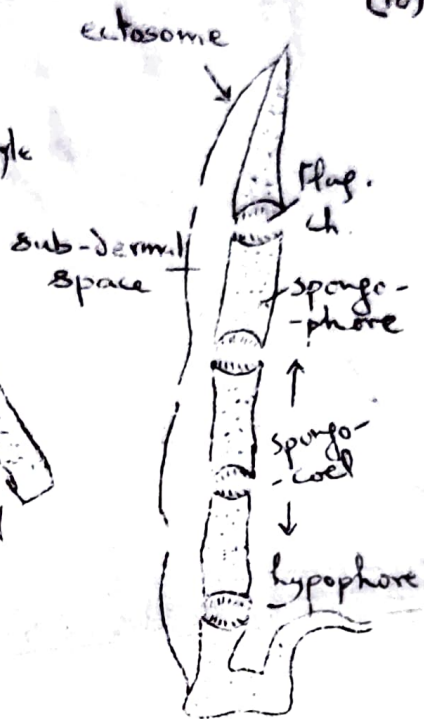 (10)
ectosome
yle
Flag.
ch.
sub-dermal
space
spongo-
-phore
spongo-
-coel
hypophore